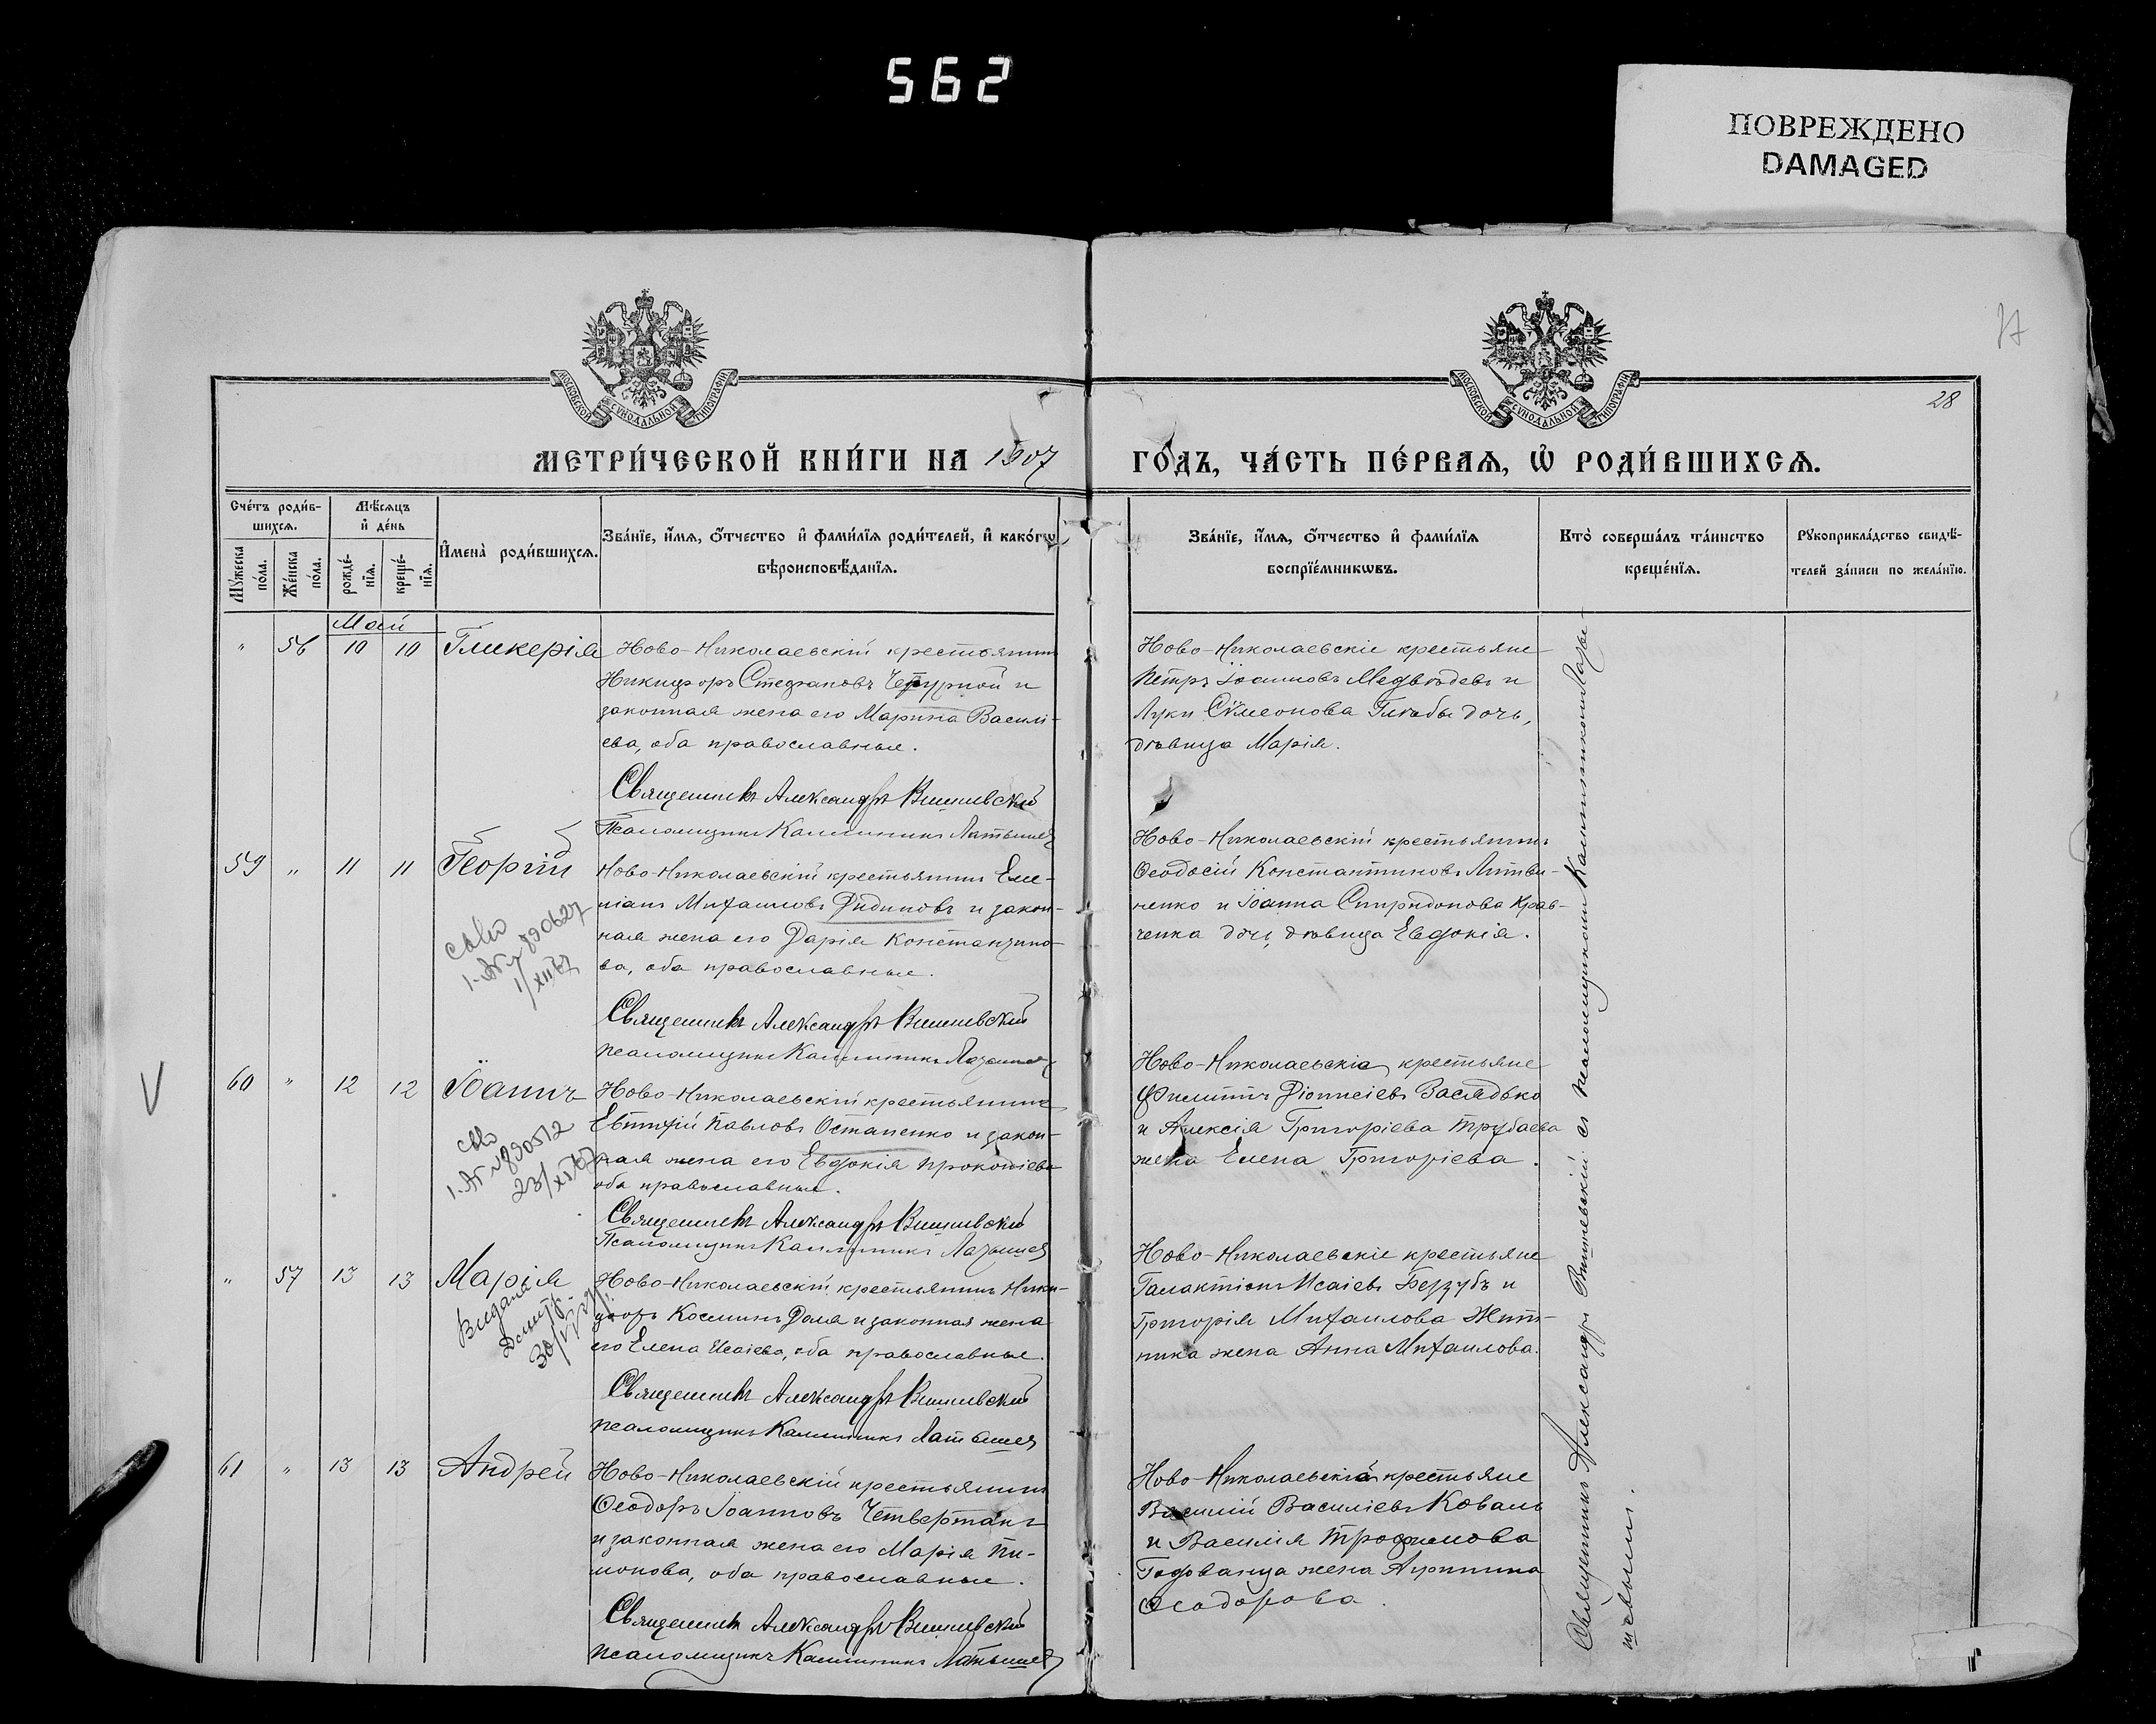 562
ПОВРЕЖДЕНО
DAMAGED
МОСКОВСКОЙ СѴНОДАЛЬНОЙ ТИПОГРАФІИ
МОСКОВСКОЙ СѴНОДАЛЬНОЙ ТИПОГРАФІИ
28
МЕТРИ́ЧЕСКОЙ КНИ́ГИ НА 1907
ГО́ДЪ, ЧА́СТЬ ПЕ́РВАѦ, Ѡ҆ РОДИ́ВШИХСѦ.
Сче́тъ роди́в-
шихсѧ.
Мꙋ́жеска по́ла.
Же́нска по́ла.
Мѣ́сѧцъ
и҆ де́нь
рожде́-
нїѧ.
креще́-
нїѧ.
И҆мена̀ роди́вшихсѧ.
Зва́нїе, и҆́мѧ, ѻ҆́тчество и҆ фами́лїѧ роди́телей, и҆ како́гѡ
вѣроисповѣ́данїѧ.
Зва́нїе, и҆́мѧ, ѻ҆́тчество и҆ фами́лїѧ
воспрїе́мникѡвъ.
Кто̀ соверша́лъ та́инство
креще́нїѧ.
Рꙋкоприкла́дство свидѣ́-
телей за́писи по жела́нїю.
Май
" 56 10 10 Гликерія
Ново-Николаевскій крестьянинъ
Никифоръ Стефановъ Чепурной и
законная жена его Марина Василі-
ева, оба православные.
Священникъ Александръ Вишневский
Псаломщикъ Каллиникъ Латышев
Ново-Николаевскіе крестьяне
Петръ Іоанновъ Медвѣдевъ и
Луки Сѵмеонова Глѣбы дочь,
дѣвица Марія.
59 " 11 11 Георгій
1/XII 67
Ново-Николаевскій крестьянинъ Еме-
ліанъ Михаиловъ Дидиновъ и закон-
ная жена его Дарія Константино-
ва, оба православные.
Священникъ Александръ Вишневский
Псаломщикъ Каллиникъ Латышев
Ново-Николаевскій крестьянинъ
Ѳеодосій Константиновъ Литви-
ненко и Іоанна Спиридонова Крав-
ченка дочь, дѣвица Евдокія.
V
60 " 12 12 Іоаннъ
23/XI 67
Ново-Николаевскій крестьянинъ
Евтихій Павловъ Остапенко и закон-
ная жена его Евдокія Прокопіева
оба православные.
Священникъ Александръ Вишневский
Псаломщикъ Каллиникъ Латышев
Ново-Николаевскіе крестьяне
Филиппъ Діонисіевъ Засядько
и Алексія Григоріева Трубаева
жена Елена Григоріева.
" 57 13 13 Марія
Ново-Николаевскій крестьянинъ Ники-
форъ Косминъ Доля и законная жена
его Елена Исаіева, оба православные.
Священникъ Александръ Вишневский
Псаломщикъ Каллиникъ Латышев
Ново-Николаевскіе крестьяне
Галактіонъ Исаіевъ Беззубъ и
Григорія Михаилова Жит-
ника жена Анна Михаилова.
61 " 13 13 Андрей
Ново-Николаевскій крестьянинъ
Ѳеодоръ Іоанновъ Четвертакъ
и законная жена его Марія Пи-
монова, оба православные.
Священникъ Александръ Вишневский
Псаломщикъ Каллиникъ Латышев
Ново-Николаевскіе крестьяне
Василій Василіевъ Коваль
и Василія Трофимова
Годованца жена Агрипина
Ѳеодорова.
Священникъ Александръ Вишневскій съ псаломщикомъ Каллиникомъ Латы-
шевымъ.